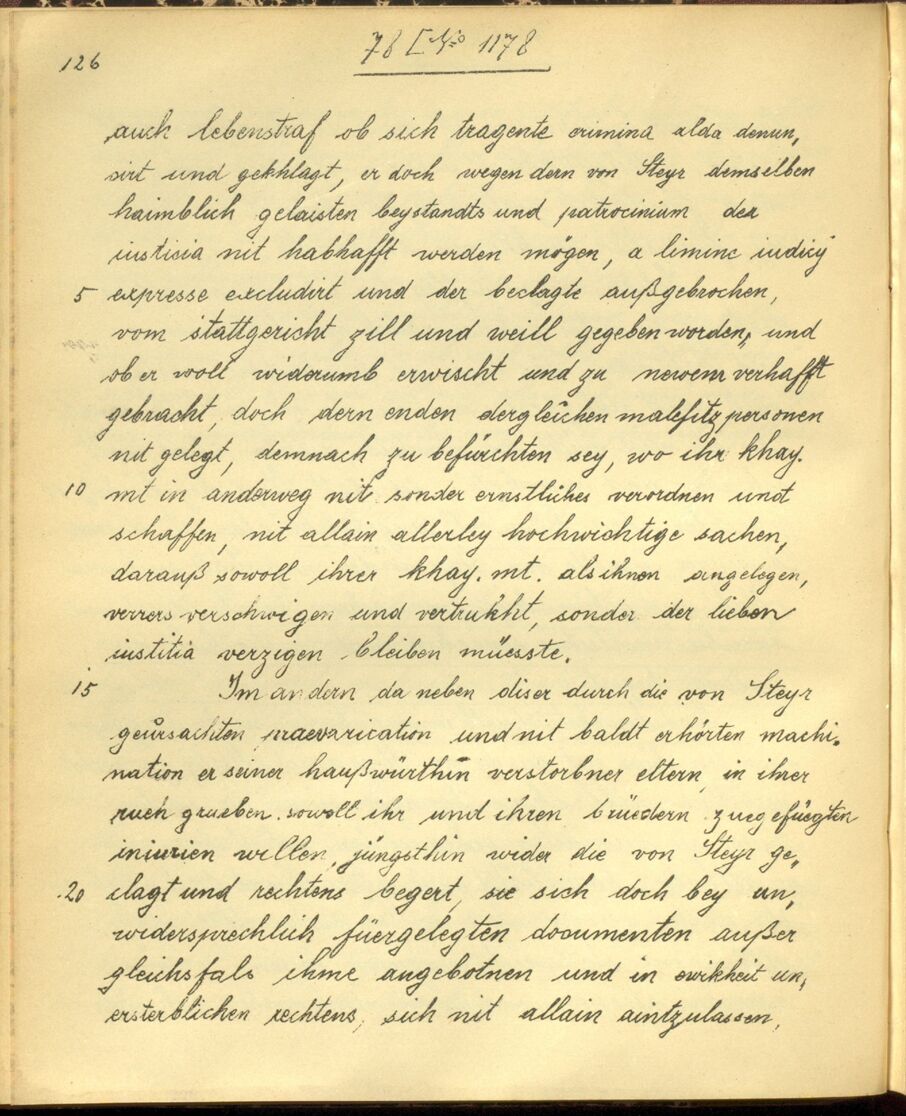 78 I No 1178
126
auch lebenstraf ob sich tragente crimina alda denun,
cirt und gekhlagt, er doch wegen dern von Steyr demselben
haimblich gelaisten beystandts und patrocinium der
iustisia nit habhafft werden mögen, a limine iudicÿ
5 expresse excludirt und der beclagte außgebrochen,
vom stattgericht zill und weill gegeben worden, und
ob er woll widerumb erwischt und zu newem verhafft
gebracht, doch dern enden dergleichen malefitzpersonen
nit gelegt, demnach zu befürchten sey, wo ihr khay.
10 mt in anderweg nit sonder ernstliches verordnen und
schaffen, nit allain allerley hochwichtige sachen,
darauß sowoll ihrer khay. mt. als ihnen angelegen,
verrers verschwigen und vertrukht, sonder der lieben
iustitia verzigen bleiben müesste.
15 Im andern da neben diser durch die von Steyr
geůrsachten praevarication und nit baldt erhörten machi,
nation er seiner haußwürthin verstorbner eltern in ihrer
rueh graeben sowoll ihr und ihren brüedern zuegefüegten
iniurien willen, jüngsthin wider die von Steyr ge,
20 clagt und rechtens begert, sie sich doch bey un,
widersprechlich füergelegten documenten außer
gleichsfals ihme angebotnen und in ewikheit un,
ersterblichen rechtens, sich nit allain aintzulassen,